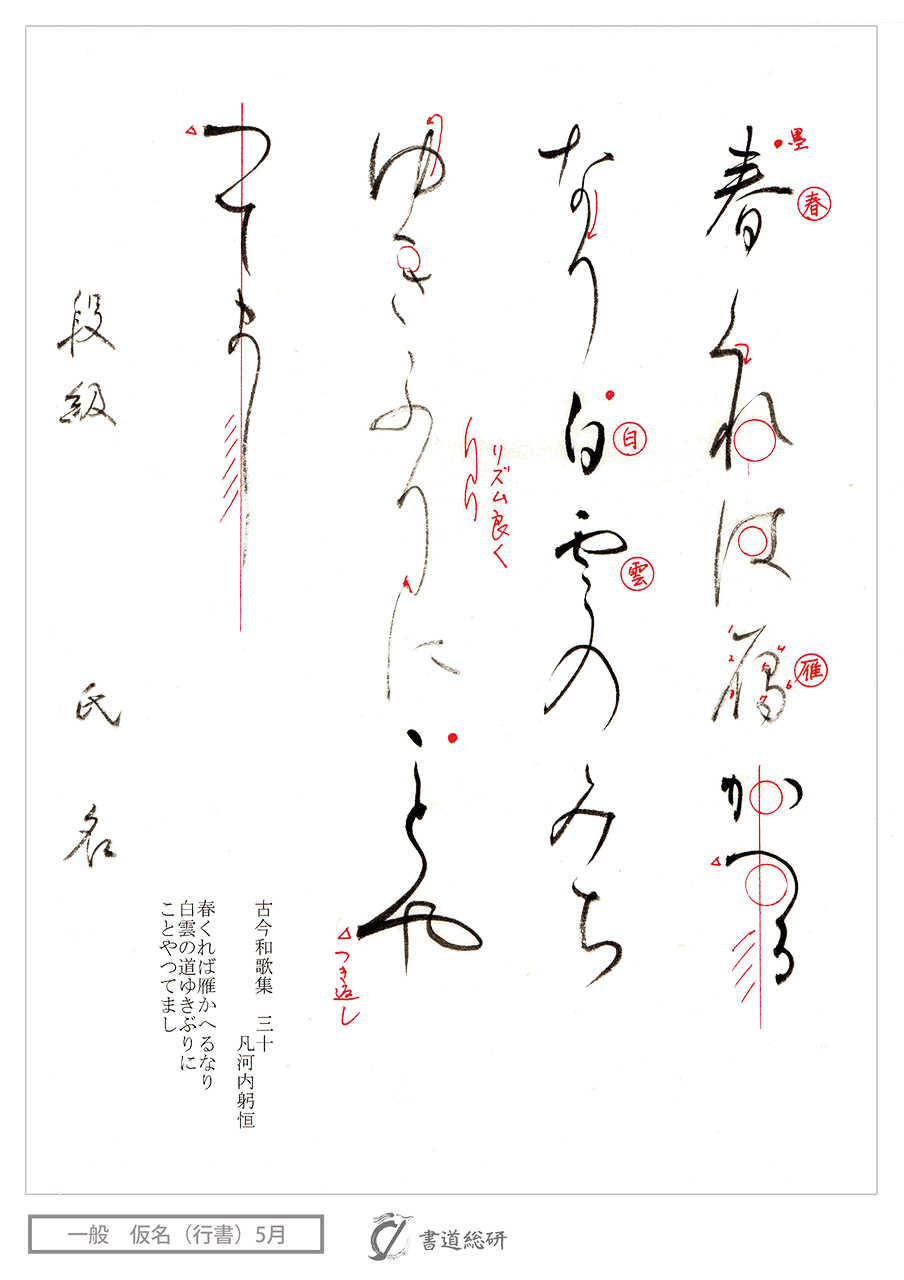 春くれは雁かへる
なり白雲のみち
ゆきふりにことや
つてまし
段級
氏名
墨
春
白
雲
雁
リズム良く
つき返し
古今和歌集 三十
凡河内躬恒
春くれば雁かへるなり
白雲の道ゆきぶりに
ことやつてまし
一般 仮名（行書）5月
書道総研